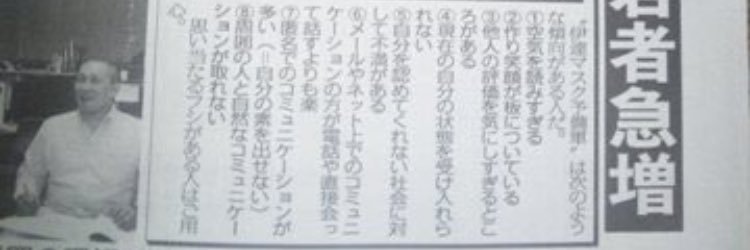 若者急増
“伊達マスク予備軍”は次のよう
な傾向がある人だ。
①空気を読みすぎる
②作り笑顔が板についている
③他人の評価を気にしすぎるとこ
ろがある
④現在の自分の状態を受け入れら
れない
⑤自分を認めてくれない社会に対
して不満がある
⑥メールやネット上でのコミュニ
ケーションの方が電話や直接会っ
て話すよりも楽
⑦匿名でのコミュニケーションが
多い(=自分の素を出せない)
⑧周囲の人と自然なコミュニケー
ションが取れない
思い当たるフシがある人はご用
心。